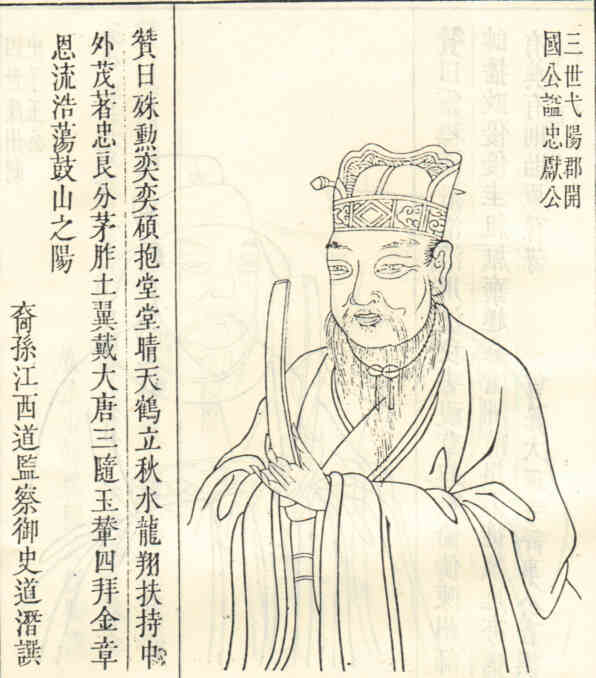 三世弋陽郡開
國公諡忠獻公
贊曰殊勳奕奕碩抱堂堂晴天鶴立秋水龍翔扶持中
外茂著忠良分茅胙土翼戴大唐三隨玉輦四拜金章
恩流浩蕩鼓山之陽
裔孫江西道監察御史道潛譔